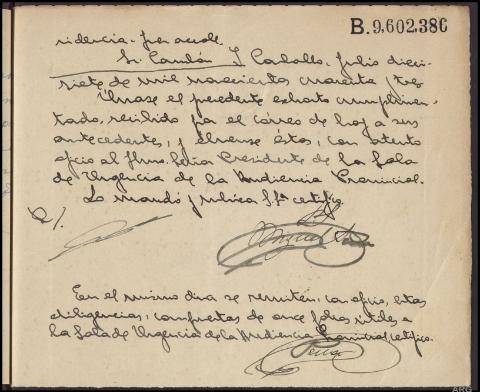 B.9,602,386
ridencia.- Juez accdl.
Sr. Candón y Caballo. Julio dieci-
siete de mil novecientos cuarenta y tres
Únase el precedente exhorto cumplimen-
tado, recibido por el correo de hoy a sus
antecedentes, y elévense éstos, con atento
oficio al Ilmo. Señor Presidente de la Sala
de Urgencia de la Audiencia Provincial.
Lo mandó y rubrica S.Sª certifico.
Miguel
En el mismo día se remiten, con oficio, estas
diligencias, compuestas de once folios útiles a
la Sala de Urgencia de la Audiencia Provincial, certifico.
ARG